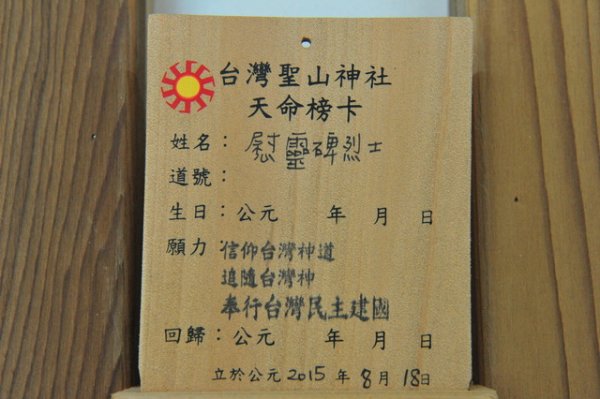 台灣聖山神社
天命榜卡
姓名：慰靈碑烈士
道號：
生日：公元 年 月 日
願力：信仰台灣神道
追隨台灣神
奉行台灣民主建國
回歸：公元 年 月 日
立於公元2015年8月18日